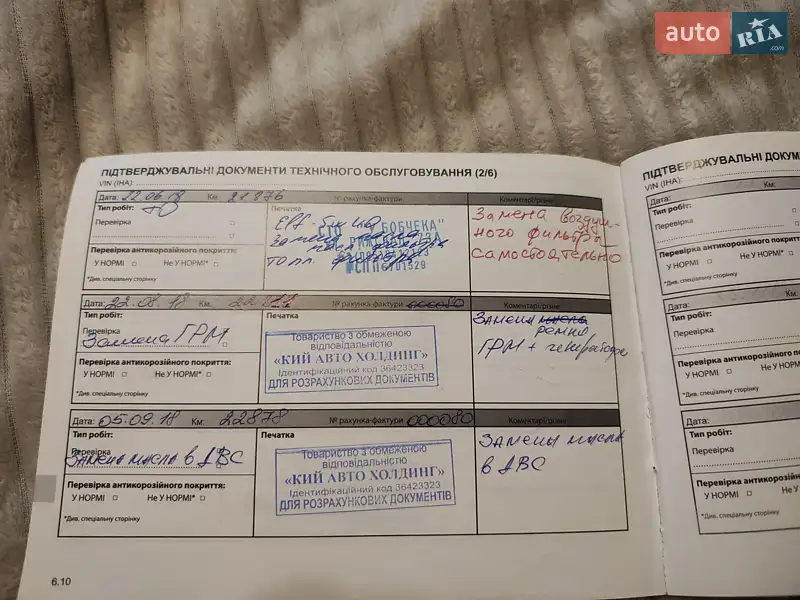 auto RIA.com
ПІДТВЕРДЖУВАЛЬНІ ДОКУМЕНТИ ТЕХНІЧНОГО ОБСЛУГОВУВАННЯ (2/6)
VIN (ІНА):
Дата: 22.06.18 Км: 21876 № рахунка-фактури Коментарі/різне
Тип робіт: ТО
Перевірка
Перевірка антикорозійного покриття:
У НОРМІ Не У НОРМІ*
*Див. спеціальну сторінку
Печатка
СТО "БОБЧЕКА"
Замена воздуш-
ного фильтра
самостоятельно
Дата: 22.08.18 Км: 22711 № рахунка-фактури 000080 Коментарі/різне
Тип робіт:
Перевірка
Замена ГРМ
Перевірка антикорозійного покриття:
У НОРМІ Не У НОРМІ*
*Див. спеціальну сторінку
Печатка
Товариство з обмеженою
відповідальністю
«КИЙ АВТО ХОЛДИНГ»
Ідентифікаційний код 36423323
ДЛЯ РОЗРАХУНКОВИХ ДОКУМЕНТІВ
Замена ремня
ГРМ + генератора
Дата: 05.09.18 Км: 22878 № рахунка-фактури 000080 Коментарі/різне
Тип робіт:
Перевірка
Замена масла в ДВС
Перевірка антикорозійного покриття:
У НОРМІ Не У НОРМІ*
*Див. спеціальну сторінку
Печатка
Товариство з обмеженою
відповідальністю
«КИЙ АВТО ХОЛДИНГ»
Ідентифікаційний код 36423323
ДЛЯ РОЗРАХУНКОВИХ ДОКУМЕНТІВ
Замена масла
в ДВС
6.10
ПІДТВЕРДЖУВАЛЬНІ ДОКУМ
VIN (ІНА):
Дата: Км:
Тип робіт:
Перевірка
Перевірка антикорозійного покриття:
У НОРМІ Не У НОРМІ*
*Див. спеціальну сторінку
Дата: Км:
Тип робіт:
Перевірка
Перевірка антикорозійного покриття:
У НОРМІ Не У НОРМІ
*Див. спеціальну сторінку
Дата: Км:
Тип робіт:
Перевірка
Перевірка антикорозійного покри
У НОРМІ Не У НОРМІ
*Див. спеціальну сторінку